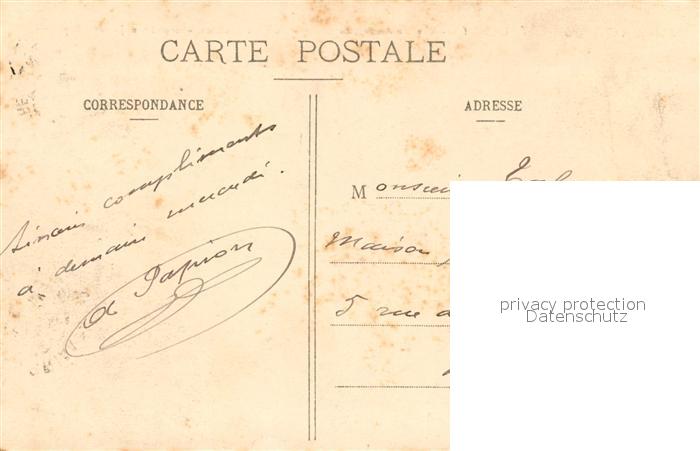 CARTE POSTALE
CORRESPONDANCE
ADRESSE
compliments
à demain mercredi.
Papion
Monsieur
Maison
5 rue
privacy protection
Datenschutz